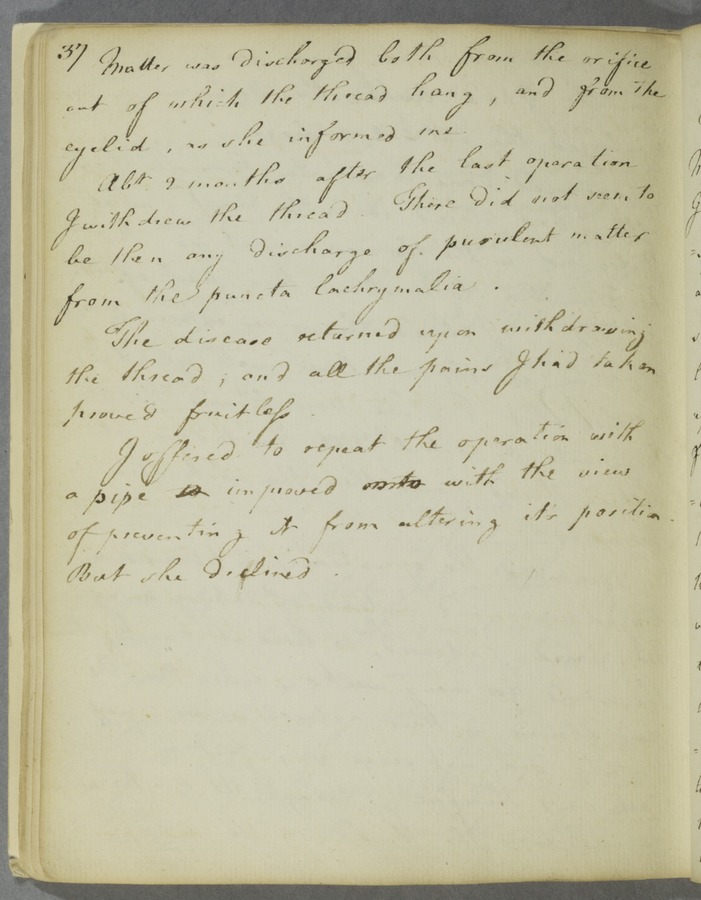 37 Matter was discharged both from the orifice
out of which the thread hang, and from the
eyelid, as she informed me
Abt. 2 months after the last operation
I withdrew the thread. There did not seem to
be then any discharge of purulent matter
from the puncta lachrymalia.
The disease returned upon withdrawing
the thread; and all the pains I had taken
proved fruitless.
I offered to repeat the operation with
a pipe improved with the view
of preventing it from altering its position.
But she declined.